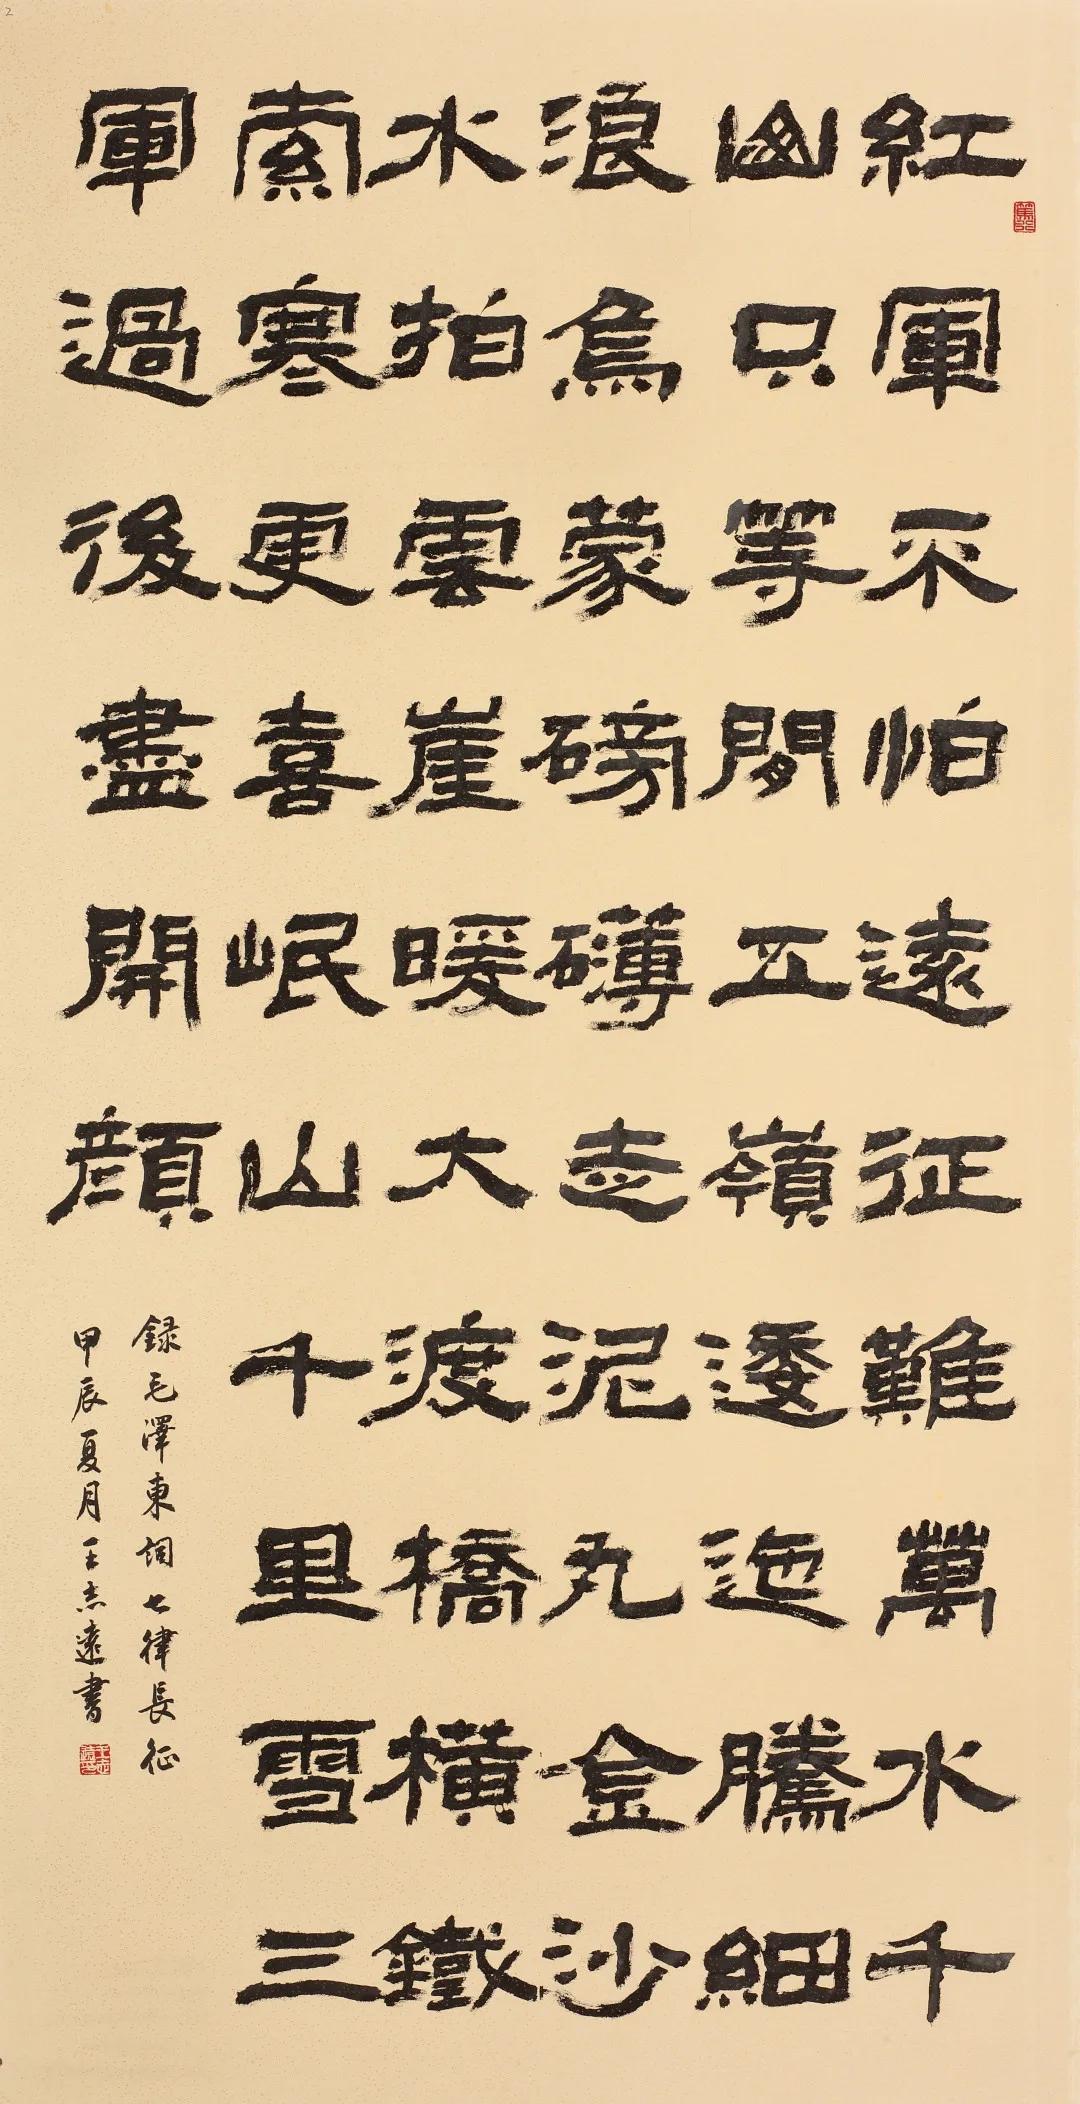 紅軍不怕遠征難萬水千
山只等閒五嶺逶迤騰細
浪烏蒙磅礴走泥丸金沙
水拍雲崖暖大渡橋橫鐵
索寒更喜岷山千里雪三
軍過後盡開顏
録毛澤東詞七律長征
甲辰夏月王志遠書